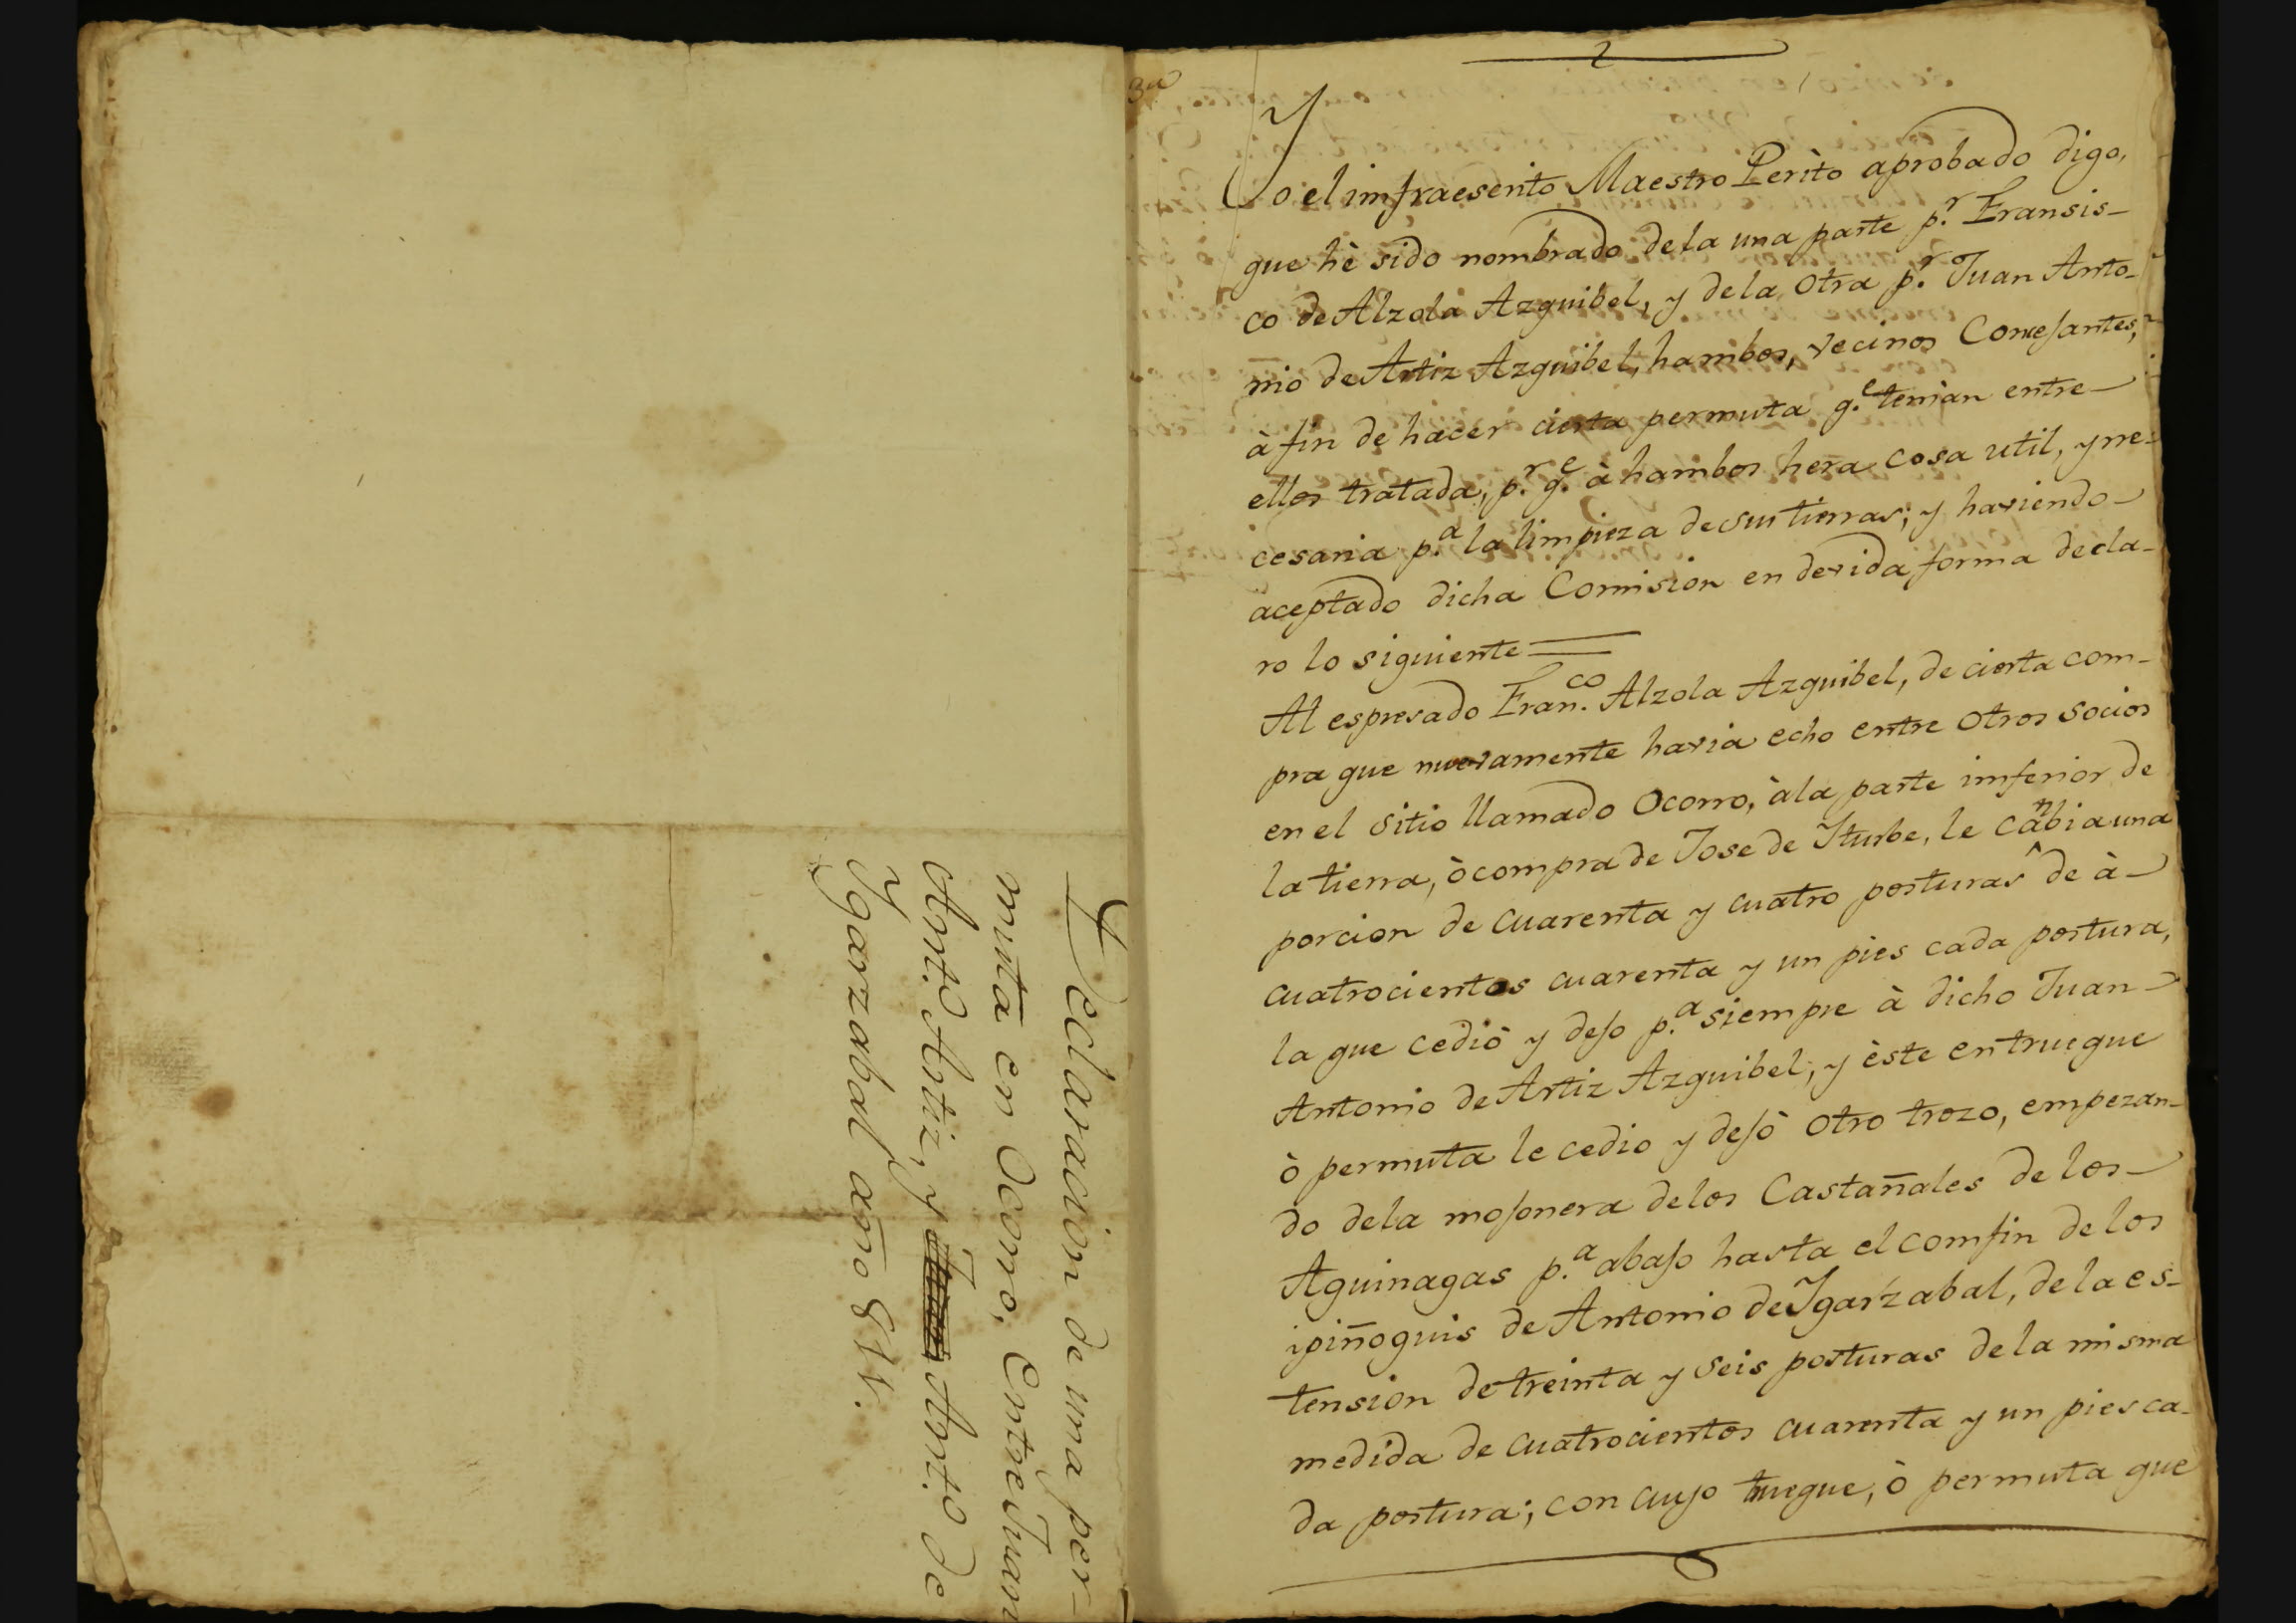 Declaracion de una per-
muta en Ocorro, entre Juan
Ant.º Artiz, y Ant.º de
Ygarzabal año 811.
Yo el imfraescrito Maestro Perìto aprobado digo,
que hè sido nombrado de la una parte p.r Fransis-
co de Alzola Azguibel, y de la otra p.r Juan Anto-
nio de Artiz Azguibel, hambos, vecinos Comesantes,
à fin de hacer cierta permuta q.e tenian entre
ellos tratada, p.r q.e à hambos hera cosa util, y ne-
cesaria p.a la limpieza de sus tierras; y haviendo
aceptado dicha Comision en devida forma decla-
ro lo siguiente
Al espresado Fran.co Alzola Azguibel, de cierta com-
pra que nuevamente havia echo entre otros socios
en el sitio llamado Ocorro, à la parte imferior de
la tierra, ò compra de Jose de Yturbe, le cânbia una
porcion de cuarenta y cuatro posturas de à
cuatrocientos cuarenta y un pies cada postura,
la que cediò y dejo p.a siempre à dicho Juan
Antonio de Artiz Azguibel; y èste en truegue
ò permuta le cedio y dejò otro trozo, empezan-
do de la mojonera de los Castañales de los
Aguinagas p.a abajo hasta el comfin de los
ipiñoguis de Antonio de Ygarzabal, de la es-
tension de treinta y seis posturas de la misma
medida de cuatrocientos cuarenta y un pies ca-
da postura; con cuyo truegue, ò permuta que